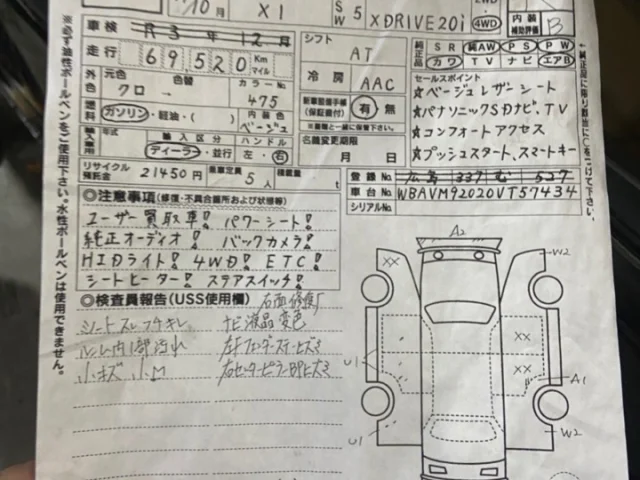 10月 X1 SW 5 XDRIVE20i 4WD 内装 補助評価 B
車検 R3年12月 シフト AT
純正品 SR 純AW PS PW
カワ TV ナビ エアB
走行 69,520 Km マイル
外色 元色 クロ 色替 カラーNo. 475
冷房 AAC
セールスポイント
★ベージュレザーシート
★パナソニックSDナビ、TV
★コンフォートアクセス
★プッシュスタート、スマートキー
燃料 ガソリン・軽油・( ) 内装色 ベージュ
新車整備手帳(保証書付) 有 無
※書類と一緒に保管下さい。
輸入車用 年式 輸入区分 ディーラー・並行 ハンドル 左・右
名義変更期限 月 日
リサイクル預託金 21450円 乗車定員 5人 積載量 t
登録No. 広島 337 む 527
車台No. WBAVM92020VT57434
シリアルNo.
◎注意事項(修復・不具合箇所および状態等)
ユーザー買取車! パワーシート!
純正オーディオ! バックカメラ!
HIDライト! 4WD! ETC!
シートヒーター! ステアスイッチ!
◎検査員報告(USS使用欄)
シートスレ コナキレ ナビ液晶変色
ルーム内1部汚れ
小キズ 小凹
A2
W2
XX
XX
XX
U1
A1
U1
W2
※必ず油性ボールペンをご使用下さい。水性ボールペンは使用できません。